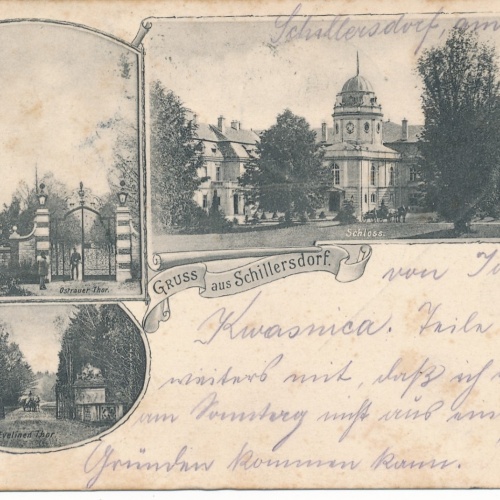 Schillersdorf, am
Schloss.
Ostrauer Thor.
GRUSS aus Schillersdorf.
Evelinen Thor.
von
Kwasnica. Teile
weiters mit, daß ich
am Sonntag nicht aus
Gründen kommen kann.